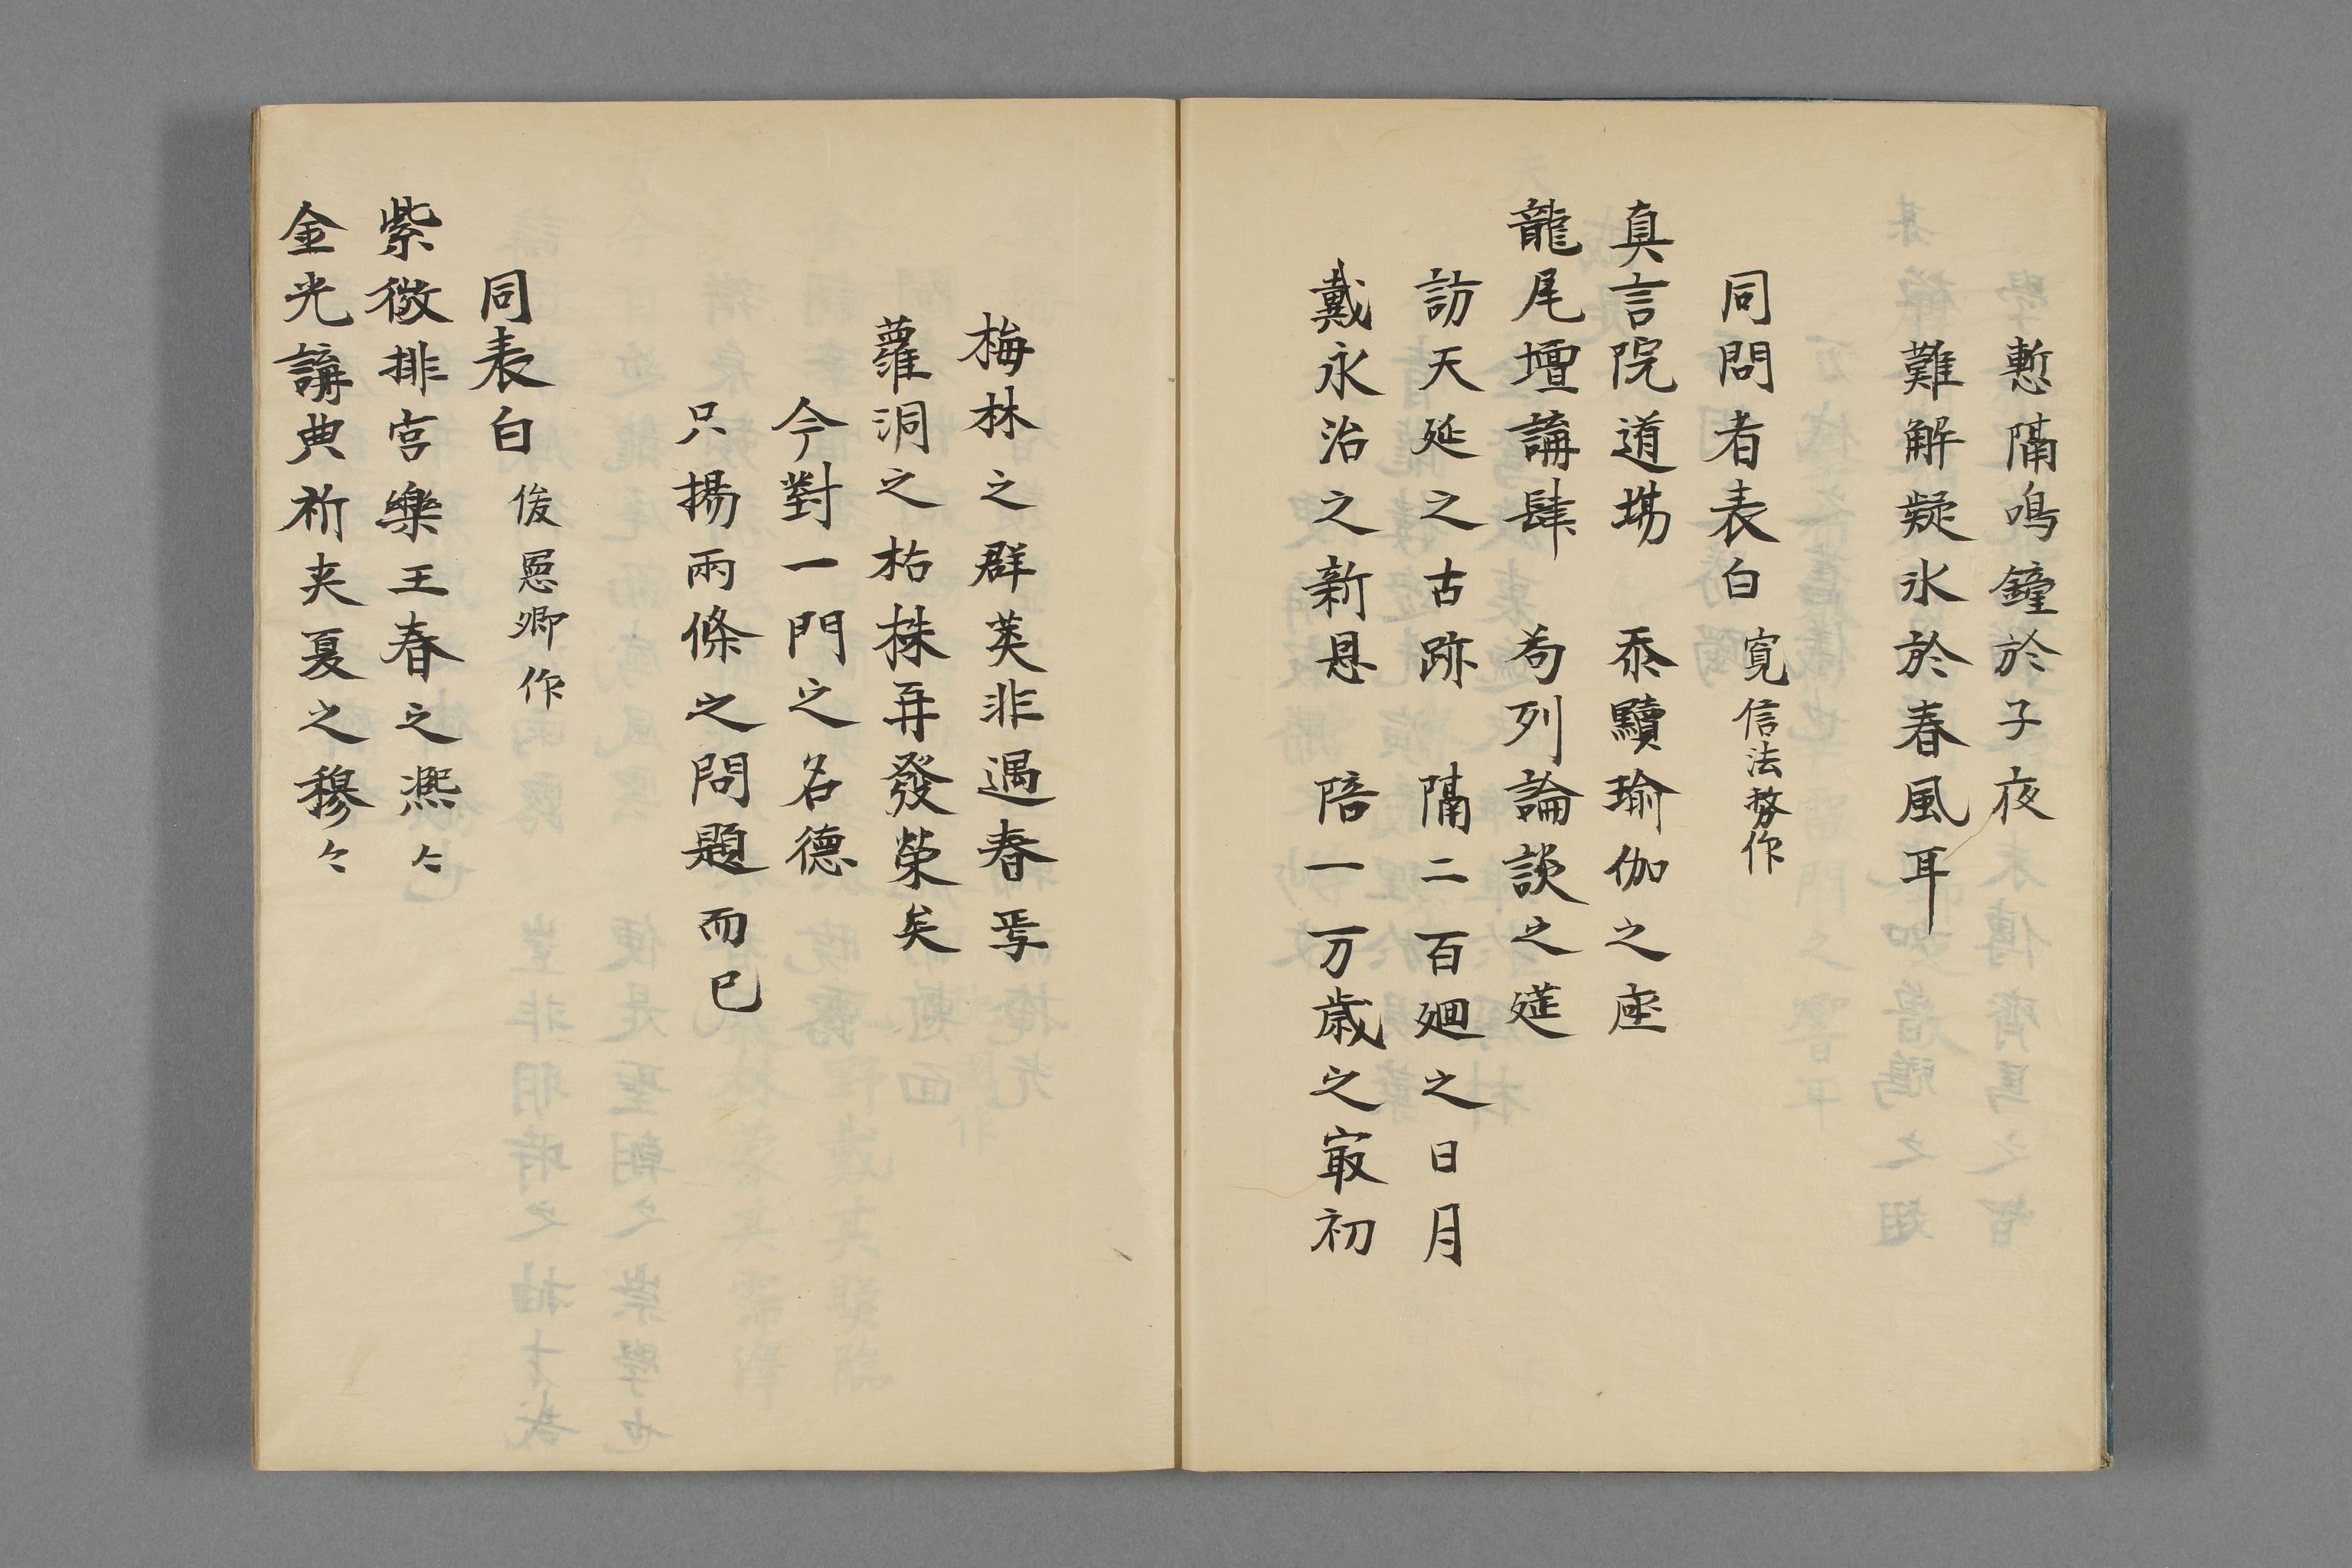 學慙隔鳴鐘於子夜
難解疑氷於春風耳
同問者表白 寛信法務作
真言院道場 忝驥瑜伽之座
龍尾壇講肆 苟列論談之莚
訪天延之古跡 隔二百廻之日月
戴永治之新恩 陪一万歳之冣初
梅林之群英非遇春焉
蘿洞之枯株再發榮矣
今對一門之名德
只揚兩條之問題而已
同表白 俊恩卿作
紫微排宮樂王春之凞々
金光講典祈夾夏之穆々